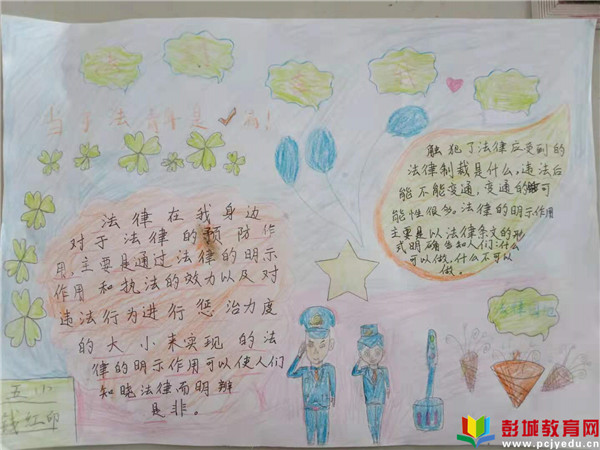 法律在我身边
对于法律的预防作
用,主要是通过法律的明示
作用和执法的效力以及对
违法行为进行惩治力度
的大小来实现的法
律的明示作用可以使人们
知晓法律而明辨
是非。
触犯了法律应受到的
法律制裁是什么,违法后
能不能变通,变通的可
能性很多。法律的明示作用
主要是以法律条文的形
式明确告知人们,什么
可以做,什么不可以
做。
五小
彭城教育网
www.pcjyedu.cn